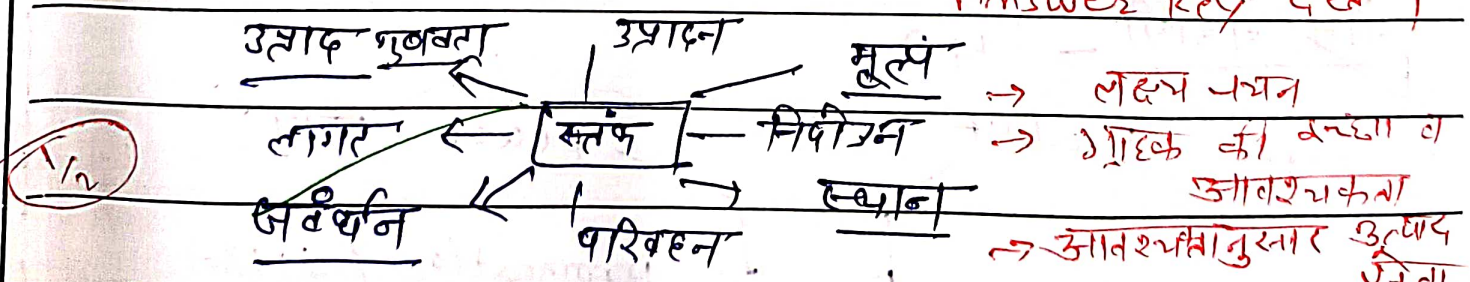 Answer Key देखें
उत्पाद गुणवत्ता उत्पादन मूल्य
→ लक्ष्य चयन
लागत स्तंभ नियोजन → ग्राहक की इच्छा व
आवश्यकता
1/2
संवर्धन परिवहन स्थान
→ आवश्यकतानुसार उत्पाद